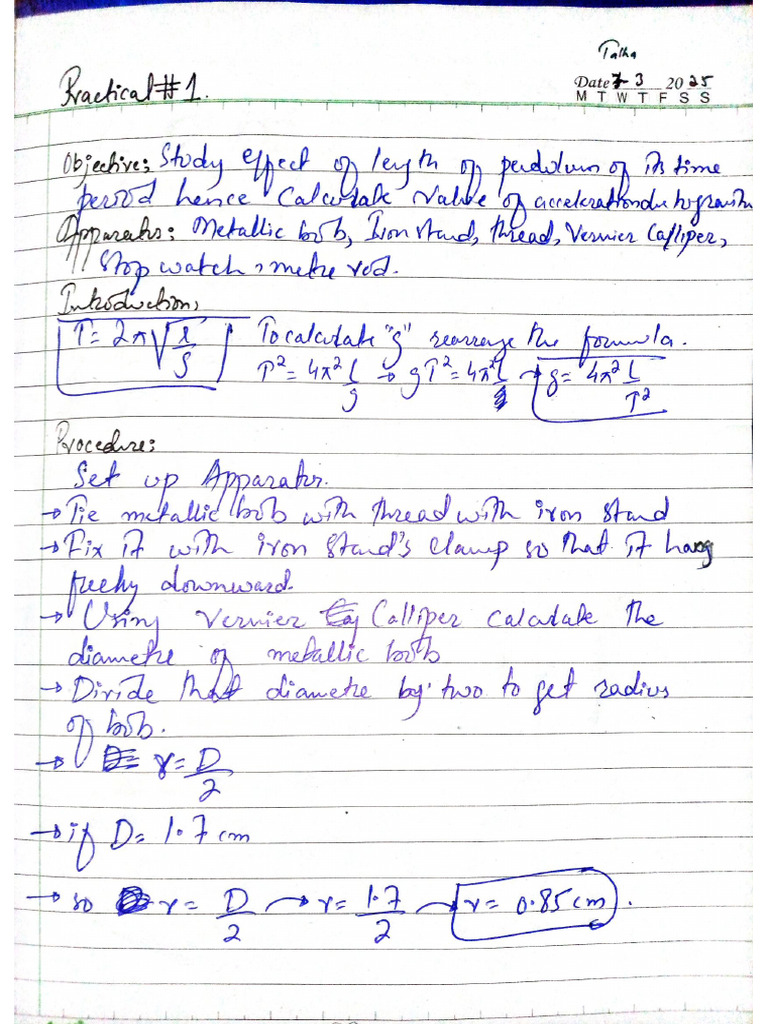 Talha
Practical #1.
Date 7-3 2025
M T W T F S S
Objective: Study effect of length of pendulum of its time
period hence calculate value of acceleration due to gravity
Apparatus: Metallic bob, Iron stand, thread, Vernier Calliper,
Stop watch, metre rod.
Introduction:
T = 2π√(l/g) To calculate "g" rearrange the formula.
T² = 4π² L/g → gT² = 4π² L → g = 4π² L/T²
Procedure:
Set up Apparatus.
→ Tie metallic bob with thread with iron stand
→ Fix it with iron stand's clamp so that it hang
freely downward.
→ Using Vernier Calliper calculate the
diametre of metallic bob
→ Divide that diametre by two to get radius
of bob.
→ r = D/2
→ if D = 1.7 cm
→ so r = D/2 → r = 1.7/2 → r = 0.85 cm.